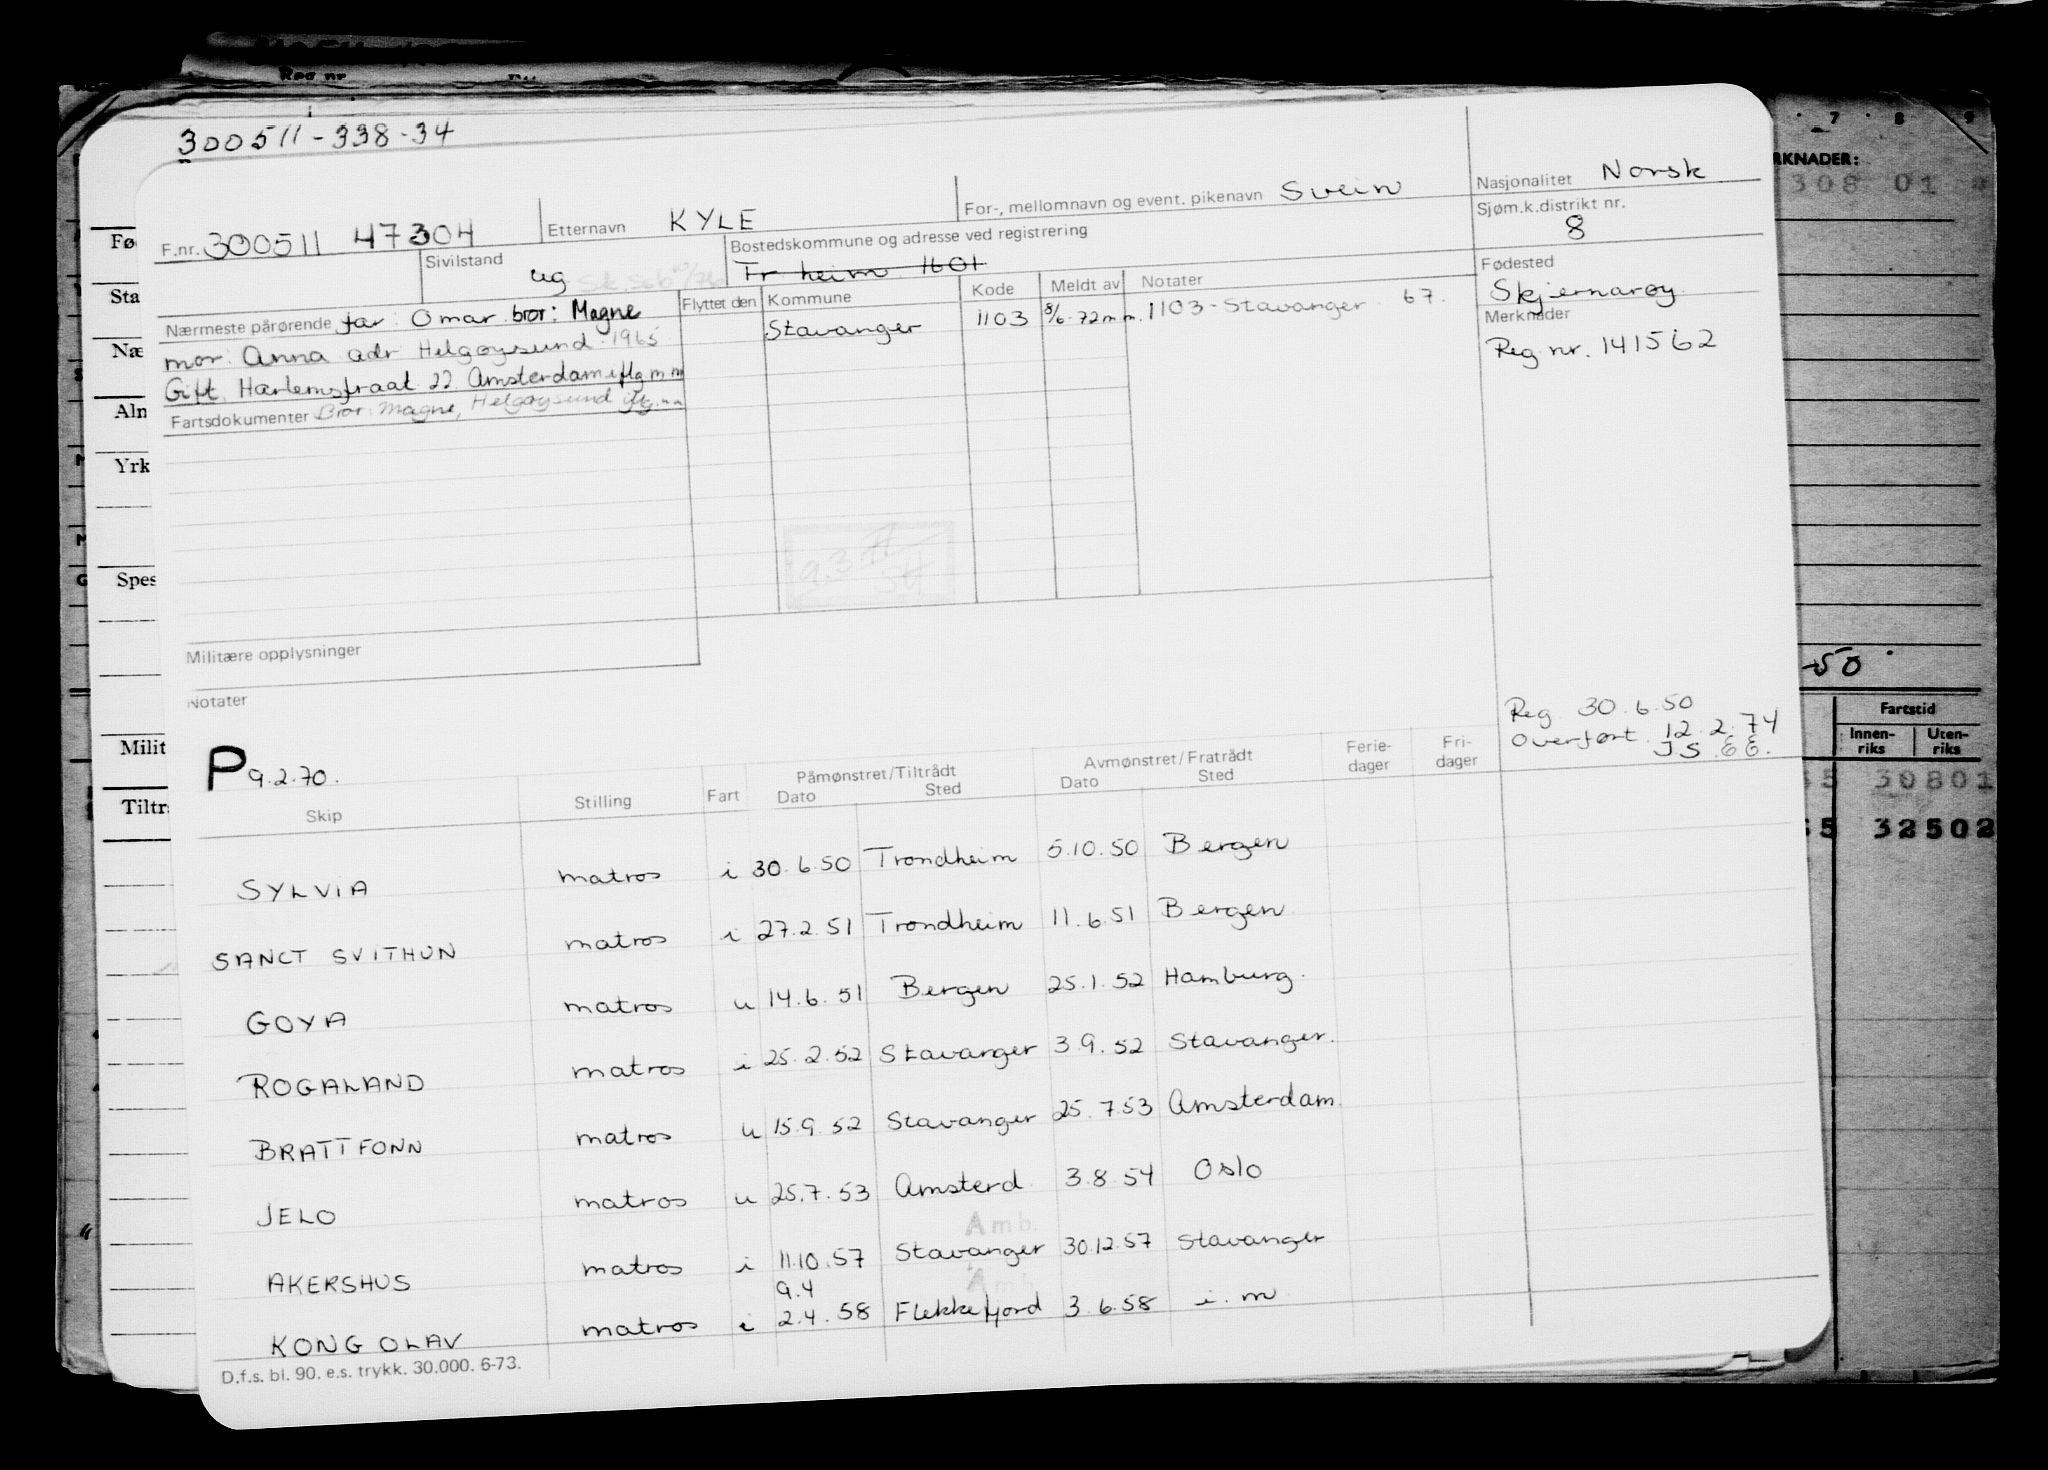 Reg nr
300511-338-34
7 8 9
RKNADER:
308 01
F.nr. 300511 47304
Etternavn KYLE
For-, mellomnavn og event. pikenavn Svein
Nasjonalitet Norsk
Sjøm.k.distrikt nr.
8
Sivilstand
ug
Bostedskommune og adresse ved registrering
Tr heim 1601
Fødested
Skjernarøy
Merknader
Reg nr. 141562
Nærmeste pårørende far: Omar bror: Magne
mor: Anna adr Helgøysund 1965
Gift. Harlemstraat 22 Amsterdam iflg m m
Fartsdokumenter Bror: Magne, Helgøysund iflg. m m
Flyttet den Kommune Kode Meldt av Notater
Stavanger 1103 8/6-72 m m. 1103-Stavanger 67.
Militære opplysninger
Notater
Reg 30.6.50
Overført 12.2.74
JS. EE.
-50
P 9.2.70.
Skip Stilling Fart Påmønstret/Tiltrådt Dato Sted Avmønstret/Fratrådt Dato Sted Ferie-dager Fri-dager
SYLVIA matros i 30.6.50 Trondheim 5.10.50 Bergen
SANCT SVITHUN matros i 27.2.51 Trondheim 11.6.51 Bergen
GOYA matros u 14.6.51 Bergen 25.1.52 Hamburg.
ROGALAND matros i 25.2.52 Stavanger 3.9.52 Stavanger.
BRATTFONN matros u 15.9.52 Stavanger 25.7.53 Amsterdam.
JELO matros u 25.7.53 Amsterd. 3.8.54 Oslo
Amb.
AKERSHUS matros i 11.10.57 Stavanger 30.12.57 Stavanger
9.4
Amb
KONG OLAV matros i 2.4.58 Flekkefjord 3.6.58 i.m
D.f.s. bl. 90. e.s. trykk. 30.000. 6-73.
Fø
Sta
Næ
Aln
Yrk
Spes
Milit
Tiltr
Fartstid
Innen-riks Uten-riks
30801
32502